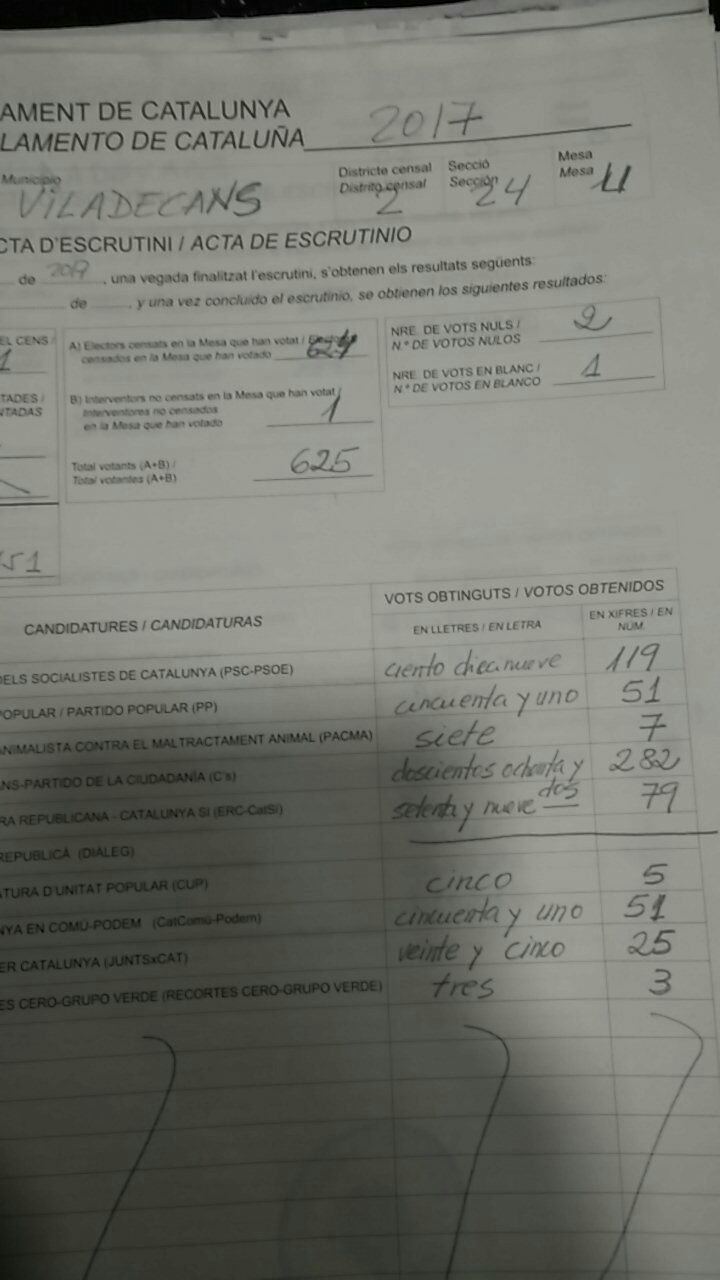 AMENT DE CATALUNYA
LAMENTO DE CATALUÑA 2017
Municipio
VILADECANS
Districte censal
Distrito censal
2
Secció
Sección
24
Mesa
Mesa
U
CTA D'ESCRUTINI / ACTA DE ESCRUTINIO
de 2017, una vegada finalitzat l'escrutini, s'obtenen els resultats següents:
de, y una vez concluido el escrutinio, se obtienen los siguientes resultados:
EL CENS /
1
TADES /
NTADAS
51
A) Electors censats en la Mesa que han votat /
censados en la Mesa que han votado 624
B) Interventors no censats en la Mesa que han votat /
Interventores no censados
en la Mesa que han votado 1
Total votants (A+B) /
Total votantes (A+B) 625
NRE. DE VOTS NULS /
N.º DE VOTOS NULOS 2
NRE. DE VOTS EN BLANC /
N.º DE VOTOS EN BLANCO 1
CANDIDATURES / CANDIDATURAS
VOTS OBTINGUTS / VOTOS OBTENIDOS
EN LLETRES / EN LETRA
EN XIFRES / EN
NÚM.
DELS SOCIALISTES DE CATALUNYA (PSC-PSOE) ciento diecinueve 119
POPULAR / PARTIDO POPULAR (PP) cincuenta y uno 51
ANIMALISTA CONTRA EL MALTRACTAMENT ANIMAL (PACMA) siete 7
NS-PARTIDO DE LA CIUDADANÍA (C's) doscientos ochenta y dos 282
RA REPUBLICANA - CATALUNYA SÍ (ERC-CatSí) setenta y nueve 79
REPUBLICÀ (DIÀLEG)
TURA D'UNITAT POPULAR (CUP) cinco 5
NYA EN COMÚ-PODEM (CatComú-Podem) cincuenta y uno 51
ER CATALUNYA (JUNTSxCAT) veinte y cinco 25
ES CERO-GRUPO VERDE (RECORTES CERO-GRUPO VERDE) tres 3